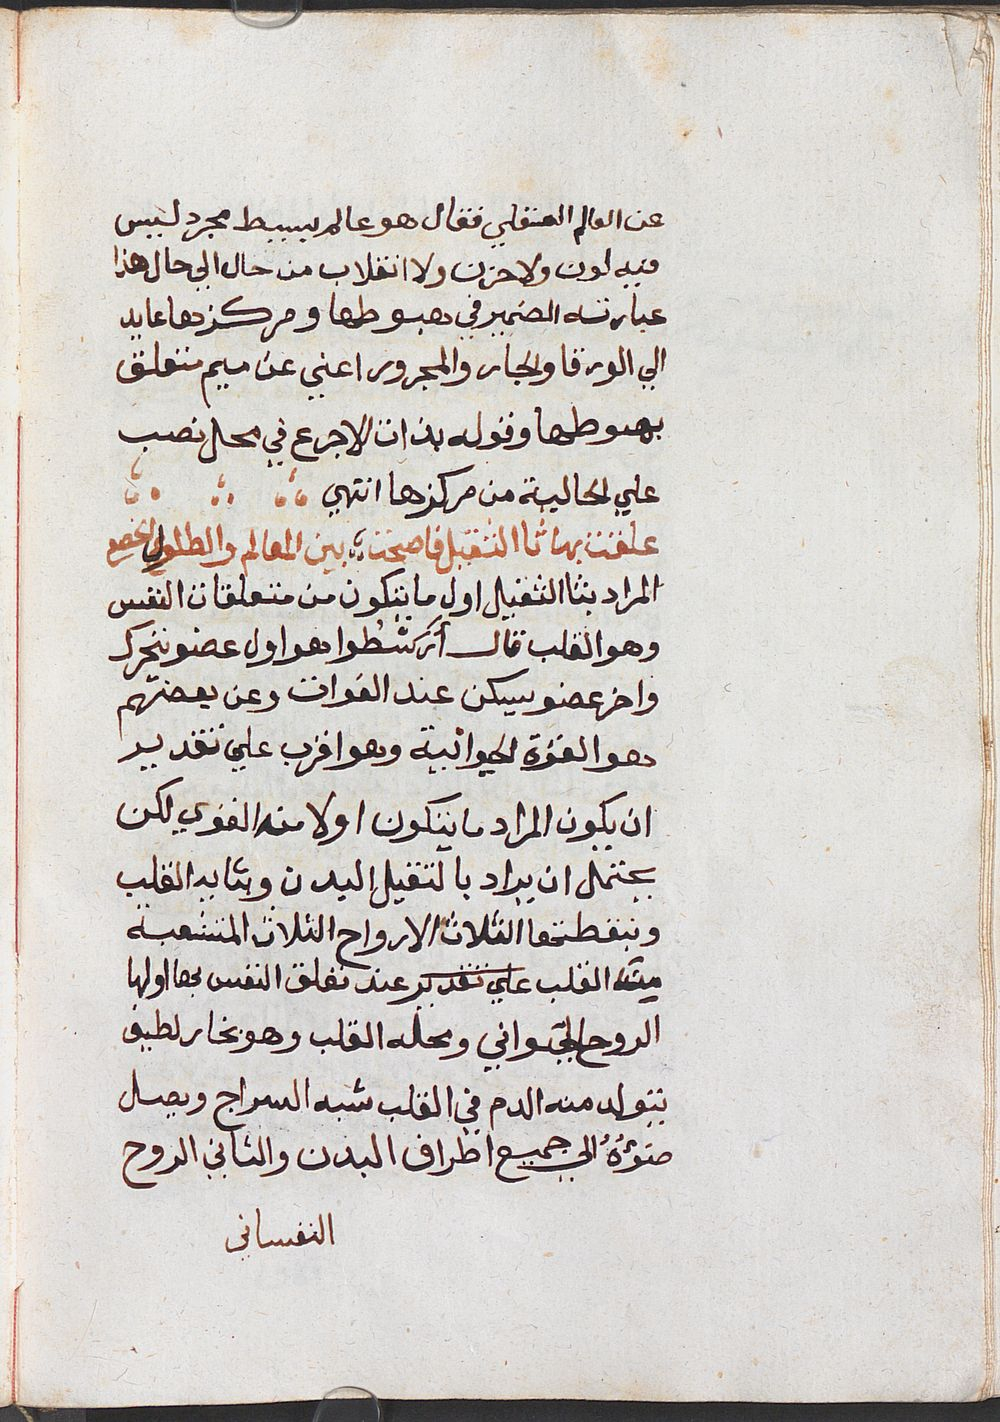 عن العالم العقلي فقال هو عالم بسيط مجرد ليس
فيه لون ولا حزن ولا انقلاب من حال الي حال هذا
عبارته الضمير في هبوطها ومركزها عايد
الي الورقا والجار والمجرور اعني عن ميم متعلق
بهبوطها وقوله بذات الاجرع في محل نصب
علي الحالية من مركزها انتهي
علقت بها ثا الثقيل فاصبحت بين المعالم والطلول الخضع
المراد بثا الثقيل اول ما يتكون من متعلقات النفس
وهو القلب قال أرسطوا هو اول عضو يتحرك
واخر عضو يسكن عند الفوات وعن بعضهم
هو القوة الحيوانية وهو اقرب علي تقدير
ان يكون المراد ما يتكون اولا منه القوي لكن
يحتمل ان يراد بالثقيل البدن وبثايه القلب
وبنقطتها الثلاث الارواح الثلاث المتشعبة
منه القلب علي تقدير عند تعلق النفس بها اولها
الروح الحيواني ومحله القلب وهو بخار لطيف
يتولد منه الدم في القلب شبه السراج ويصل
ضوؤه الي جميع اطراف البدن والثاني الروح
النفساني